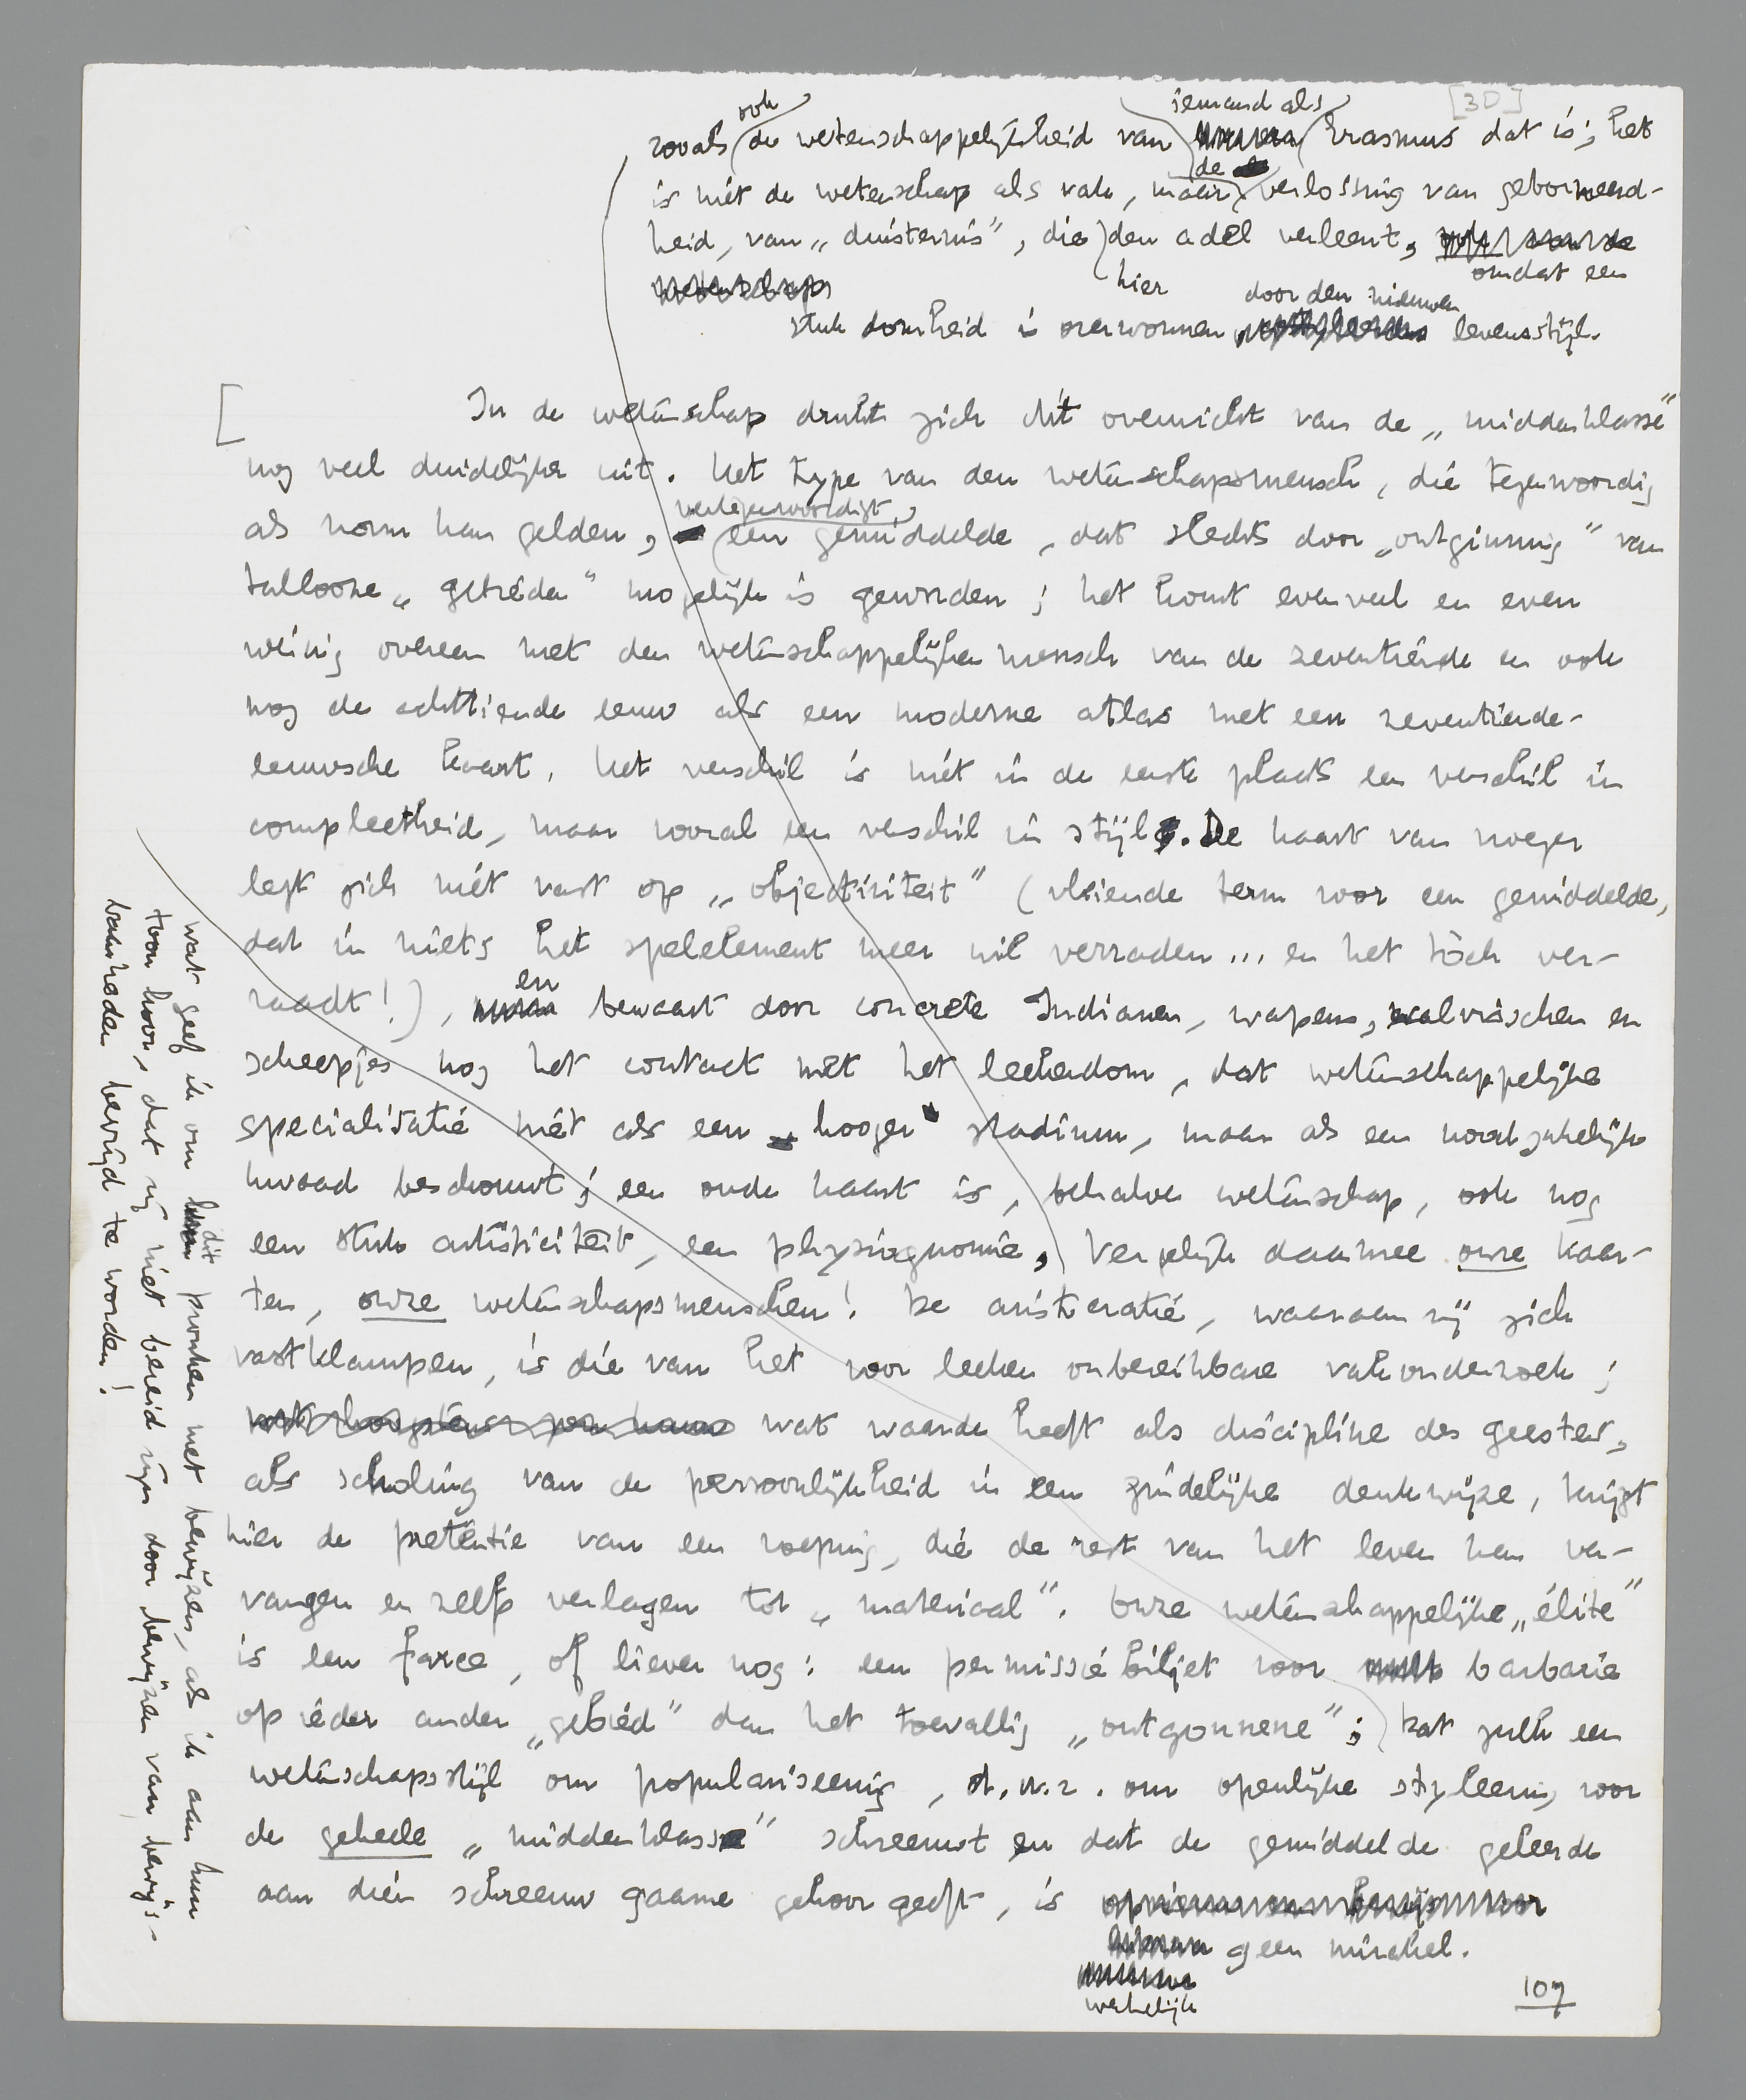 [3D]
zooals ook de wetenschappelijkheid van iemand als Erasmus dat is; het
is niet de wetenschap als vak, maar de verlossing van geborneerd-
heid, van „duisternis”, die hier den adel verleent, omdat een
stuk domheid is overwonnen door den nieuwen levensstijl.
In de wetenschap drukt zich dit overwicht van de „middenklasse”
nog veel duidelijker uit. Het type van den wetenschapsmensch, die tegenwoordig
als norm kan gelden, vertegenwoordigt een gemiddelde, dat slechts door „ontginning” van
tallooze „gebieden” mogelijk is geworden; het komt evenveel en even
weinig overeen met den wetenschappelijken mensch van de zeventiende en ook
nog de achttiende eeuw als een moderne atlas met een zeventiende-
eeuwsche kaart. Het verschil is niet in de eerste plaats een verschil in
compleetheid, maar vooral een verschil in stijl. De kaart van vroeger
legt zich niet vast op „objectiviteit” (vleiende term voor een gemiddelde,
dat in niets het spelelement meer wil verraden... en het tòch ver-
raadt!), en bewaart door concrete Indianen, wapens, walvisschen en
scheepjes nog het contact met het leekendom, dat wetenschappelijke
specialisatie niet als een „hooger” stadium, maar als een noodzakelijk
kwaad beschouwt; een oude kaart is, behalve wetenschap, ook nog
een stuk artisticiteit, een physiognomie. Vergelijk daarmee onze kaar-
ten, onze wetenschapsmenschen! De aristocratie, waaraan zij zich
vastklampen, is die van het voor leeken onbereikbare vakonderzoek;
wat waarde heeft als discipline des geestes,
als scholing van de persoonlijkheid in een zindelijke denkwijze, krijgt
hier de pretentie van een roeping, die de rest van het leven kan ver-
vangen en zelfs verlagen tot „materiaal”. Onze wetenschappelijke „élite”
is een farce, of liever nog: een permissiebiljet voor barbarie
op ieder ander „gebied” dan het toevallig „ontgonnene”; dat zulk een
wetenschapsstijl om populariseering, d.w.z. om openlijke styleering voor
de geheele „middenklasse” schreeuwt en dat de gemiddelde geleerde
aan dien schreeuw gaarne gehoor geeft, is
geen mirakel.
werkelijk
107
wat geef ik om dit pronken met bewijzen, als ik aan hun
toon hoor, dat zij niet bereid zijn door bewijzen van bewijs-
baarheden bevrijd te worden!